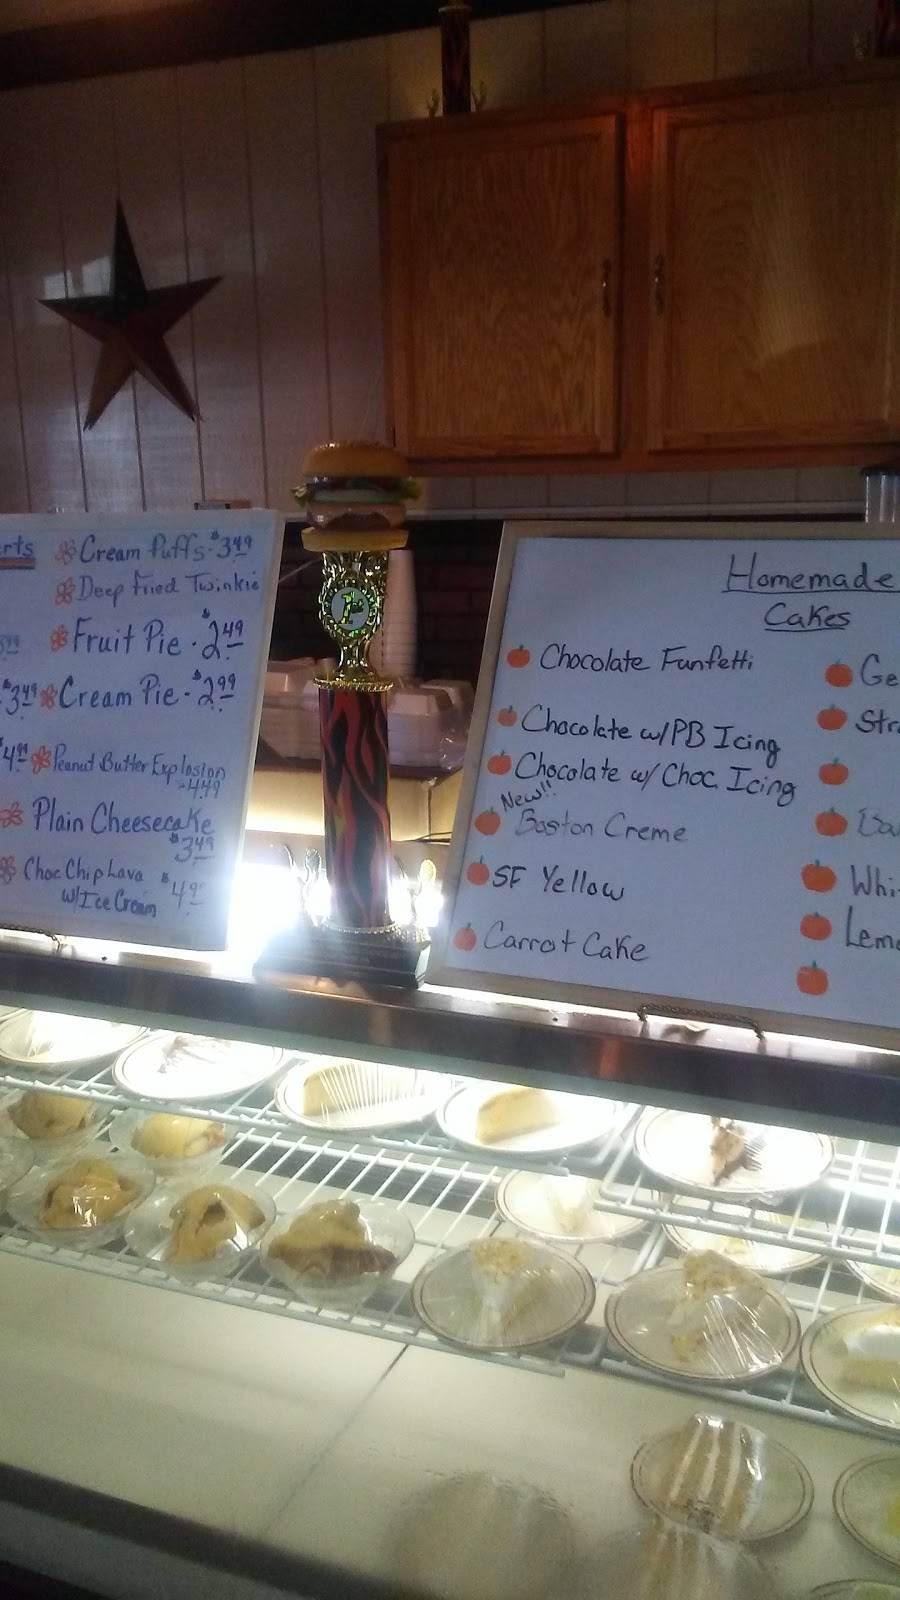 Cream Puffs - $3.49
Deep Fried Twinkie
Fruit Pie - $2.49
$3.49
Cream Pie - $2.99
Peanut Butter Explosion
- 4.49
Plain Cheesecake
$3.49
Choc Chip Lava $4.99
w/ Ice Cream
Homemade
Cakes
Chocolate Funfetti
Chocolate w/ PB Icing
Chocolate w/ Choc. Icing
New!!
Boston Creme
SF Yellow
Carrot Cake